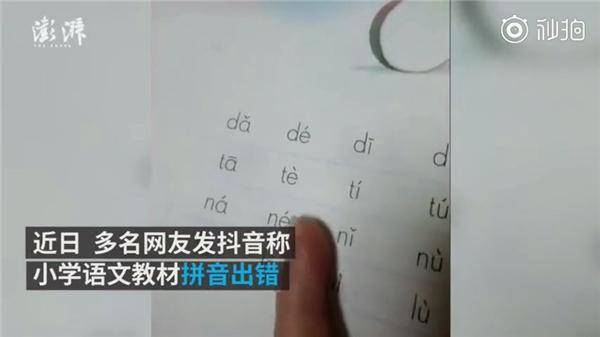 澎湃
THE PAPER
秒拍
dǎ dé dī d
tā tè tí tú
ná né nǐ nù
lù
近日 多名网友发抖音称
小学语文教材拼音出错